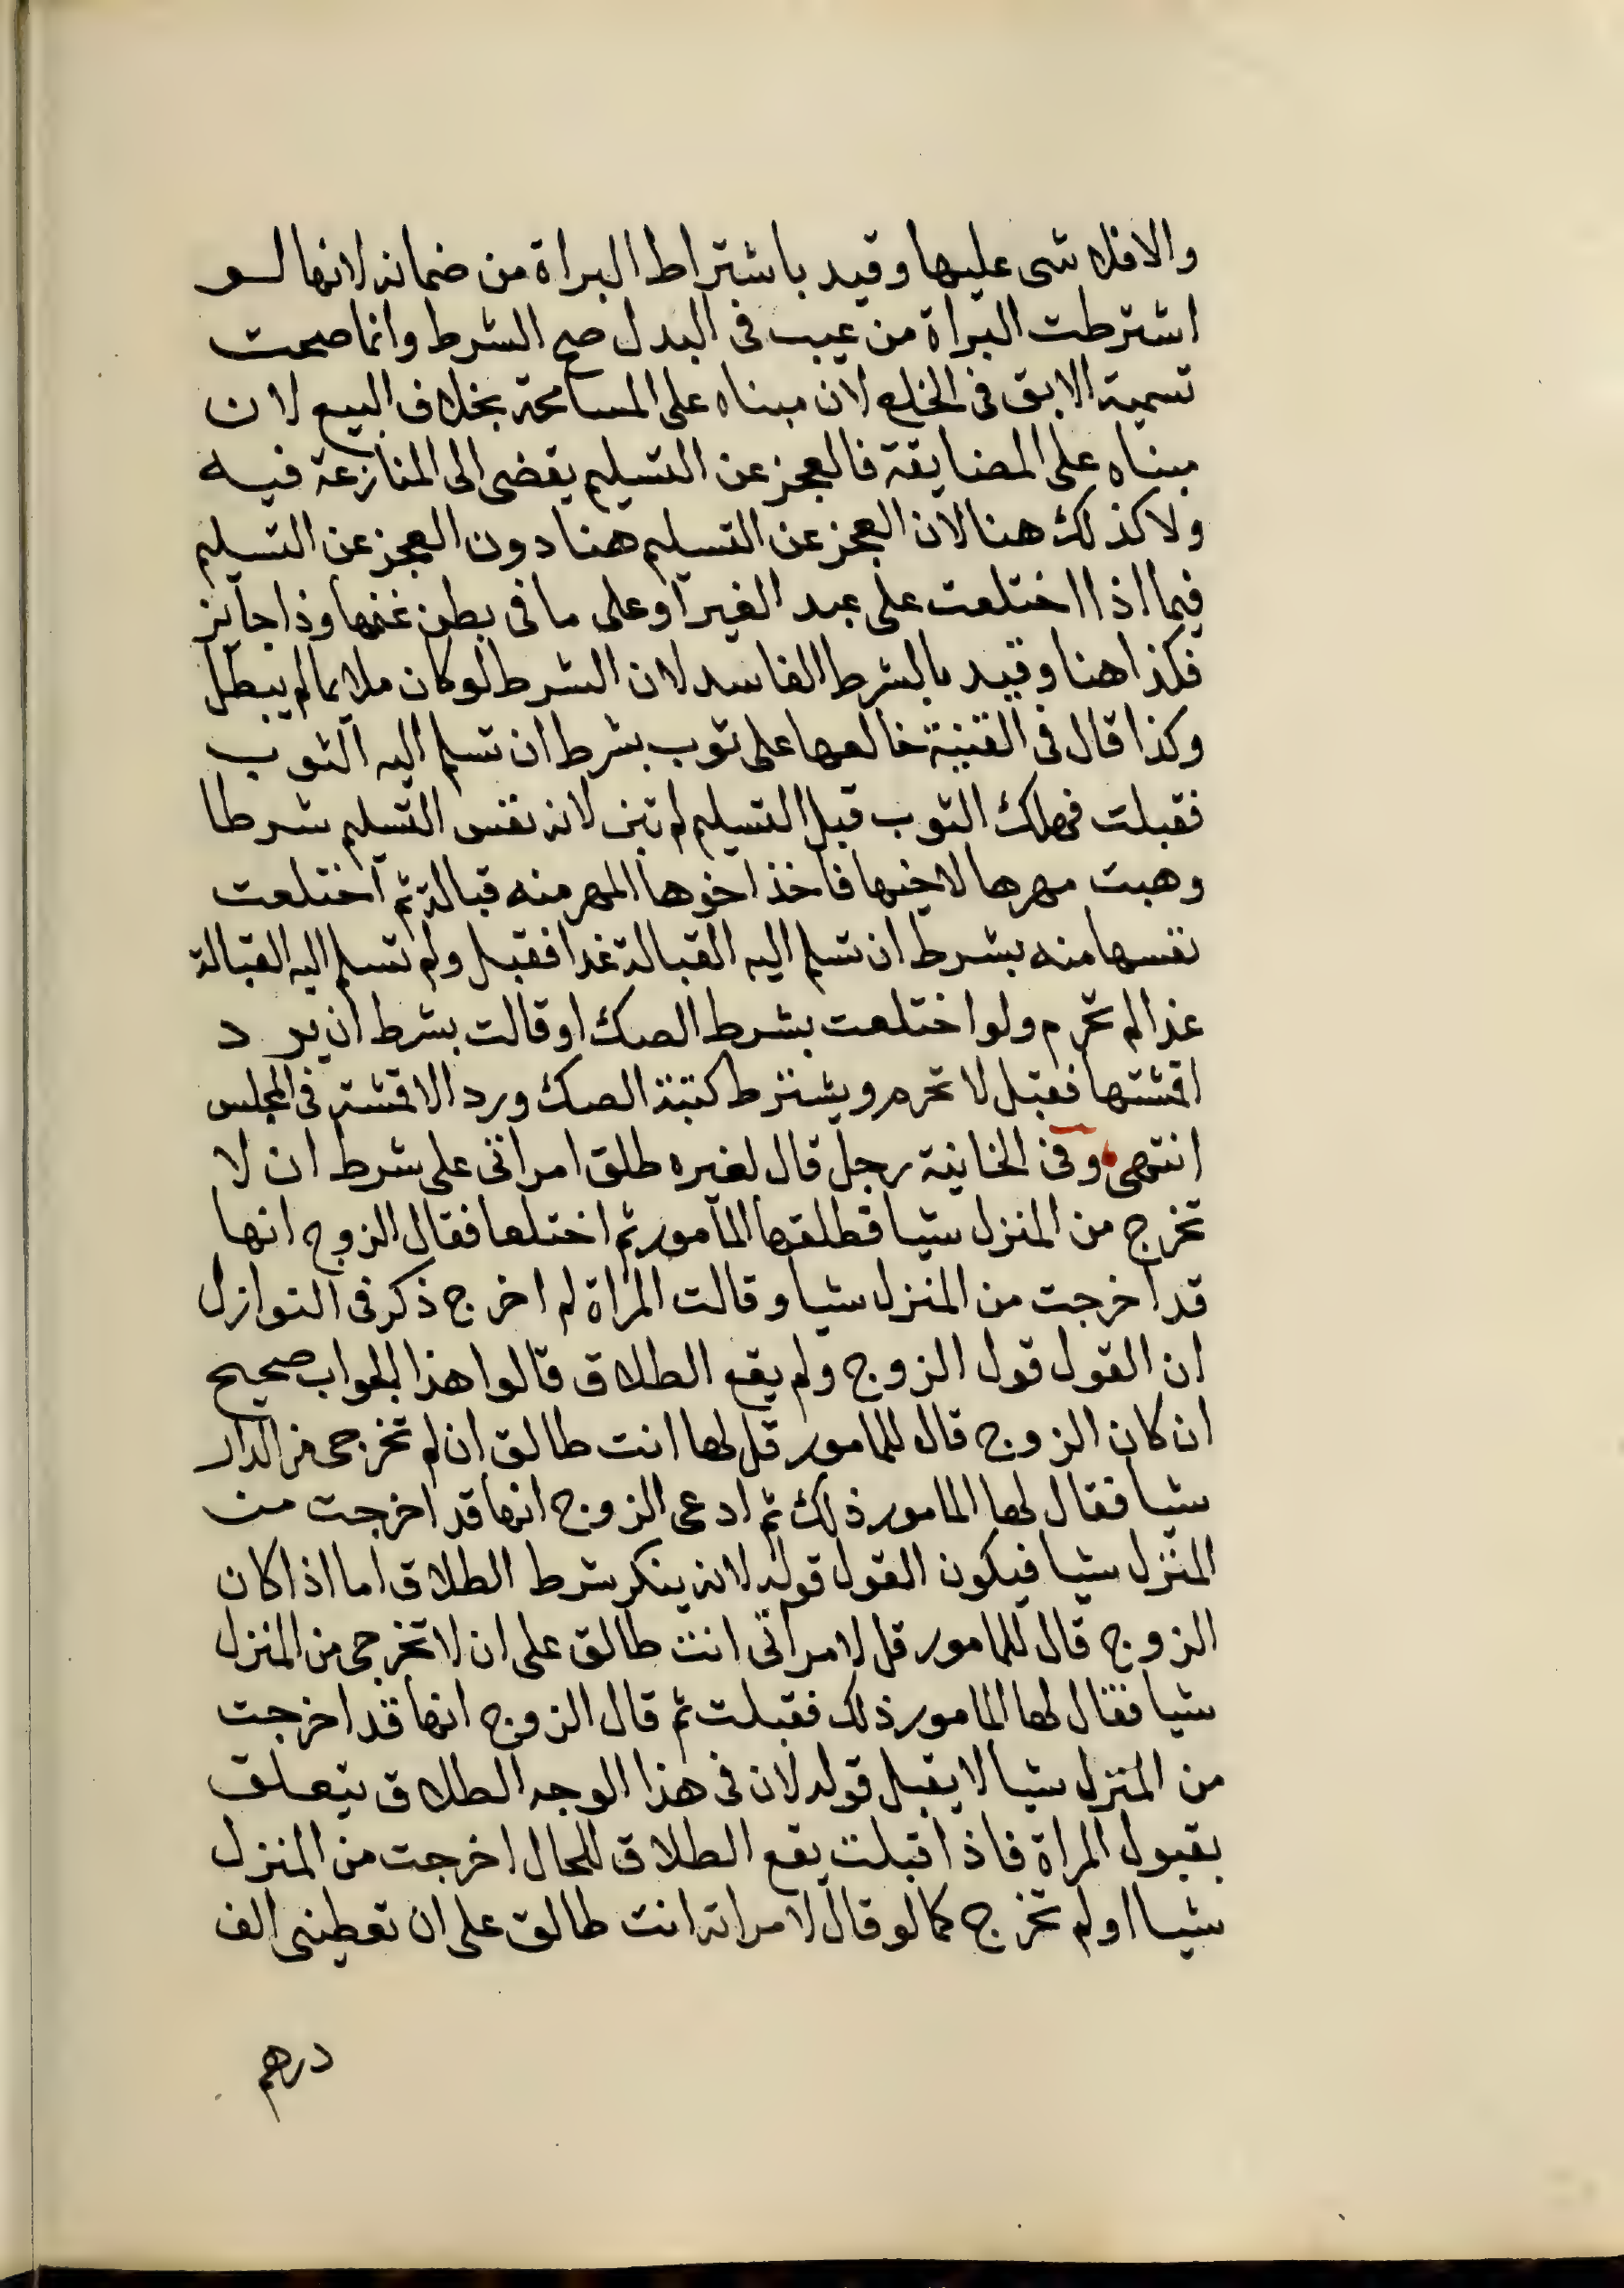 والا فلا شى عليها وقيد باشتراط البراة من ضمانه لانها لو
اشترطت البراة من عيب فى البدل صح الشرط وانما صحت
تسمية الابق فى الخلع لان مبناه على المسامحة بخلاف البيع لان
مبناه على المضايقة فالعجز عن التسليم يفضى الى المنازعة فيه
ولا كذلك هنا لان العجز عن التسليم هنا دون العجز عن التسليم
فيما اذا اختلعت على عبد الغير او على ما فى بطن غنمها وذا جايز
فكذا هنا وقيد بالشرط الفاسد لان الشرط لو كان ملايما لم يبطل
وكذا قال فى القنية خالعها على ثوب بشرط ان تسلم اليه الثوب
فقبلت فهلك الثوب قبل التسليم لم تبن لانه نفس التسليم شرطا
وهبت مهرها لاخيها فاخذ اخوها المهر منه قبالة ثم اختلعت
نفسها منه بشرط ان تسلم اليه القبالة غدا فقبل ولم تسلم اليه القبالة
غدا لم تحرم ولو اختلعت بشرط الصك او قالت بشرط ان يرد
اقمشتها فقبل لا تحرم ويشترط كتبة الصك ورد الاقمشة فى المجلس
انتهى وفى الخانية رجل قال لغيره طلق امراتى على شرط ان لا
تخرج من المنزل شيا فطلقها المامور ثم اختلعا فقال الزوج انها
قد اخرجت من المنزل شيا وقالت المراة لم اخرج ذكر فى النوازل
ان القول قول الزوج ولم يقع الطلاق قالوا هذا الجواب صحيح
ان كان الزوج قال للمامور قل لها انت طالق ان لم تخرجى من الدار
شيا فقال لها المامور ذلك ثم ادعى الزوج انها قد اخرجت من
المنزل شيا فيكون القول قوله لانه ينكر شرط الطلاق اما اذا كان
الزوج قال للمامور قل لامراتى انت طالق على ان لا تخرجى من المنزل
شيا فقال لها المامور ذلك فقبلت ثم قال الزوج انها قد اخرجت
من المنزل شيا لا يقبل قوله لان فى هذا الوجه الطلاق يتعلق
بقبول المراة فاذا قبلت يقع الطلاق للحال اخرجت من المنزل
شيا اولم تخرج كما لو قال لامراته انت طالق على ان تعطينى الف
درهم